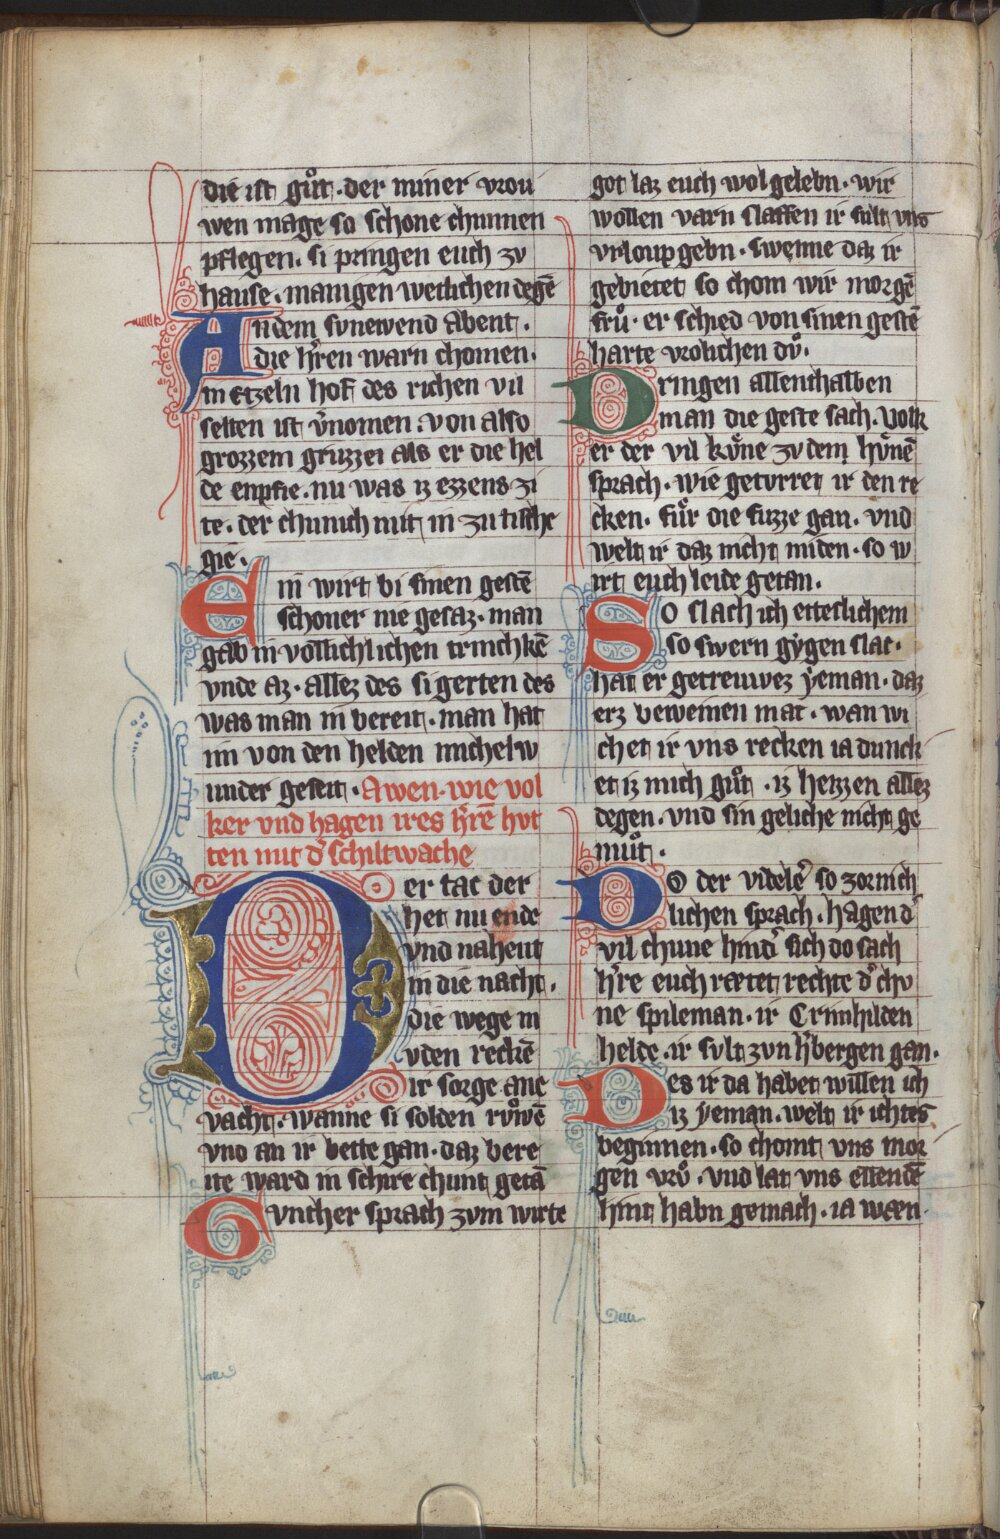 die ist gůt. der miner vrou
wen mage so schone chunnen
pflegen. si pringen euch zv
hause. manigen wetlichen degē
An dem svnewend Abent.
die h͛ren warn chomen.
in etzeln hof des richen vil
selten ist v͛nomen: von also
grozzem gruzzei als er die hel
de enpfie. nu was iz ezzens zi
te. der chunich mit in zu tische
gie.
Ein wirt bi sinen gestē
schoner nie gesaz. man
gab in vollichlichen trinchkē
vnde az. allez des si gerten des
was man in bereit. man hat
im von den helden michel w
under geseit. Awen. wie vol
ker vnd hagen ires h͛rē hvt
ten mit d͛ schiltwache
Der tac der
het nu ende
vnd nahent
in die nacht.
die wege m
vden reckē
ir sorge ane
vacht. wanne si solden rvͦwē
vnd an ir bette gan. daz bere
ite ward in schire chunt getā
Gvncher sprach zvm wirte
got laz euch wol gelebn. wir
wollen varn slaffen ir sult vns
vrloup gebn. swenne daz ir
gebietet so chom wir morgē
frů. er schied von sinen gestē
harte vrolichen dvͦ.
Dringen allenthalben
man die geste sach. Volk
er der vil kůne zv dem hvͤnē
sprach. wie getvrret ir den re
cken. fůr die fuzze gan. vnd
welt ir daz nicht miden. so w
irt euch leide getan.
So slach ich etteslichem
so swern gygen slac.
hat er getreuwez yeman. daz
erz beweinen mac. wan wi
chet ir vns recken ia dunck
et iz mich gůt. iz heizzen allez
degen. vnd sin geliche nicht ge
můt.
Do der videle͛ so zornich
lichen sprach. hagen d͛
vil chune hind͛ sich do sach
h͛re euch rætet rechte d͛ chv
ne spileman. ir Crimhilden
helde. ir svlt zvn h͛bergen gan.
Des ir da habet willen ich
iz yeman. welt ir ichtes
beginnen. so chomt vns mor
gen vrvͦ. vnd lat vns ellendē
hint habn gemach. ia wæn